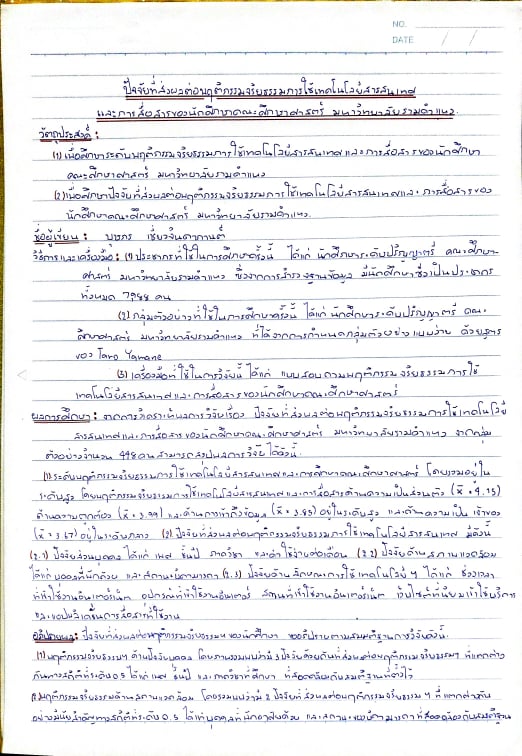 NO.
DATE / /
ปัจจัยที่ส่งผลต่อพฤติกรรมจริยธรรมการใช้เทคโนโลยีสารสนเทศ
และการสื่อสารของนักศึกษาคณะศึกษาศาสตร์ มหาวิทยาลัยรามคำแหง.
วัตถุประสงค์ :
(1) เพื่อศึกษาระดับพฤติกรรมจริยธรรมการใช้เทคโนโลยีสารสนเทศและการสื่อสารของนักศึกษา
คณะศึกษาศาสตร์ มหาวิทยาลัยรามคำแหง
(2) เพื่อศึกษาปัจจัยที่ส่งผลต่อพฤติกรรมจริยธรรมการใช้เทคโนโลยีสารสนเทศและ การสื่อสารของ
นักศึกษาคณะศึกษาศาสตร์ มหาวิทยาลัยรามคำแหง.
ชื่อผู้เขียน : บงกช เชี่ยวจินดากานต์
วิธีการและเครื่องมือ : (1) ประชากรที่ใช้ในการศึกษาครั้งนี้ ได้แก่ นักศึกษาระดับปริญญาตรี คณะศึกษา-
ศาสตร์ มหาวิทยาลัยรามคำแหง ซึ่งจากการสำรวจฐานข้อมูล มีนักศึกษาซึ่งเป็นประชากร
ทั้งหมด 7,988 คน
(2) กลุ่มตัวอย่างที่ใช้ในการศึกษาครั้งนี้ ได้แก่ นักศึกษาระดับปริญญาตรี คณะ
ศึกษาศาสตร์ มหาวิทยาลัยรามคำแหง ที่ได้จากการกำหนดกลุ่มตัวอย่างแบบง่าย ด้วยสูตร
ของ Taro Yamane
(3) เครื่องมือที่ใช้ในการวิจัยนี้ ได้แก่ แบบสอบถามพฤติกรรมจริยธรรมการใช้
เทคโนโลยีสารสนเทศและ การสื่อสารของนักศึกษาคณะศึกษาศาสตร์
ผลการศึกษา : จากการวิเคราะห์ผลการวิจัยเรื่อง ปัจจัยที่ส่งผลต่อพฤติกรรมจริยธรรมการใช้เทคโนโลยี
สารสนเทศและการสื่อสารของนักศึกษาคณะศึกษาศาสตร์ มหาวิทยาลัยรามคำแหง จากกลุ่ม
ตัวอย่างจำนวน 448 คน สามารถสรุปผลการวิจัยได้ดังนี้
(1) ระดับพฤติกรรมจริยธรรมการใช้เทคโนโลยีสารสนเทศและการศึกษาคณะศึกษาศาสตร์ โดยรวมอยู่ใน
ระดับสูง โดยพฤติกรรมจริยธรรมการใช้เทคโนโลยีสารสนเทศและการสื่อสารด้านความเป็นส่วนตัว (x̄ = 4.13)
ด้านความถูกต้อง (x̄ = 3.99) และด้านการเข้าถึงข้อมูล (x̄ = 3.85) อยู่ในระดับสูง และด้านความเป็นเจ้าของ
(x̄ = 3.67) อยู่ในระดับกลาง (2) ปัจจัยที่ส่งผลต่อพฤติกรรมจริยธรรมการใช้เทคโนโลยีสารสนเทศ มีดังนี้
(2.1) ปัจจัยส่วนบุคคล ได้แก่ เพศ ชั้นปี ภาควิชา และค่าใช้จ่ายต่อเดือน (2.2) ปัจจัยด้านสภาพแวดล้อม
ได้แก่ บุคคลที่พักด้วย และสถานะบิดามารดา (2.3) ปัจจัยด้านลักษณะการใช้เทคโนโลยีฯ ได้แก่ ช่วงเวลา
ที่ใช้ใช้งานอินเตอร์เน็ต อุปกรณ์ที่ใช้ใช้งานอินเตอร์เน็ต สถานที่ใช้ใช้งานอินเตอร์เน็ต เว็บไซต์ที่นิยมเข้าใช้บริการ
และแอปพลิเคชั่นการสื่อสารที่ใช้งาน
อภิปรายผล : ปัจจัยที่ส่งผลต่อพฤติกรรมจริยธรรมฯ ของนักศึกษา ขออภิปรายตามสมมติฐานการวิจัยดังนี้.
(1) พฤติกรรมจริยธรรมฯ ด้านปัจจัยบุคคล โดยภาพรวมพบว่ามี 3 ปัจจัยด้วยกันที่ส่งผลต่อพฤติกรรมจริยธรรมฯ ที่แตกต่าง
กันทางสถิติที่ระดับ 0.5 ได้แก่ เพศ ชั้นปี และภาควิชาที่ศึกษา ที่สอดคล้องกับสมมติฐานที่ตั้งไว้
(2) พฤติกรรมจริยธรรมด้านสภาพแวดล้อม โดยรวมพบว่ามี 2 ปัจจัยที่ส่งผลต่อพฤติกรรมจริยธรรมฯ ที่แตกต่างกัน
อย่างมีนัยสำคัญทางสถิติที่ระดับ 0.5 ได้แก่ บุคคลที่พักอาศัยด้วย และสถานะของบิดามารดา ที่สอดคล้องกับสมมติฐาน